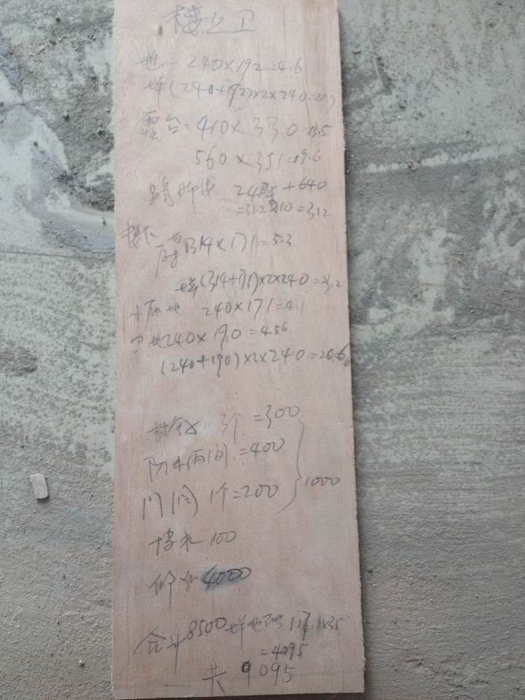 楼上卫
地 = 240×192=4.6
墙(240+192)×2×240=20.7
露台=410×330=13.5
560×351=19.6
踢脚线 2485+640
=312×10=312
楼下
厨 314×171=5.3
墙(314+171)×2×240=23.2
地 240×171=4.1
卫地240×190=4.56
(240+190)×2×240=20.6
3个=300
防水两间=400
门 1个=200
1000
100
4000
合计8500 墙地砖 117
=4095
共9095